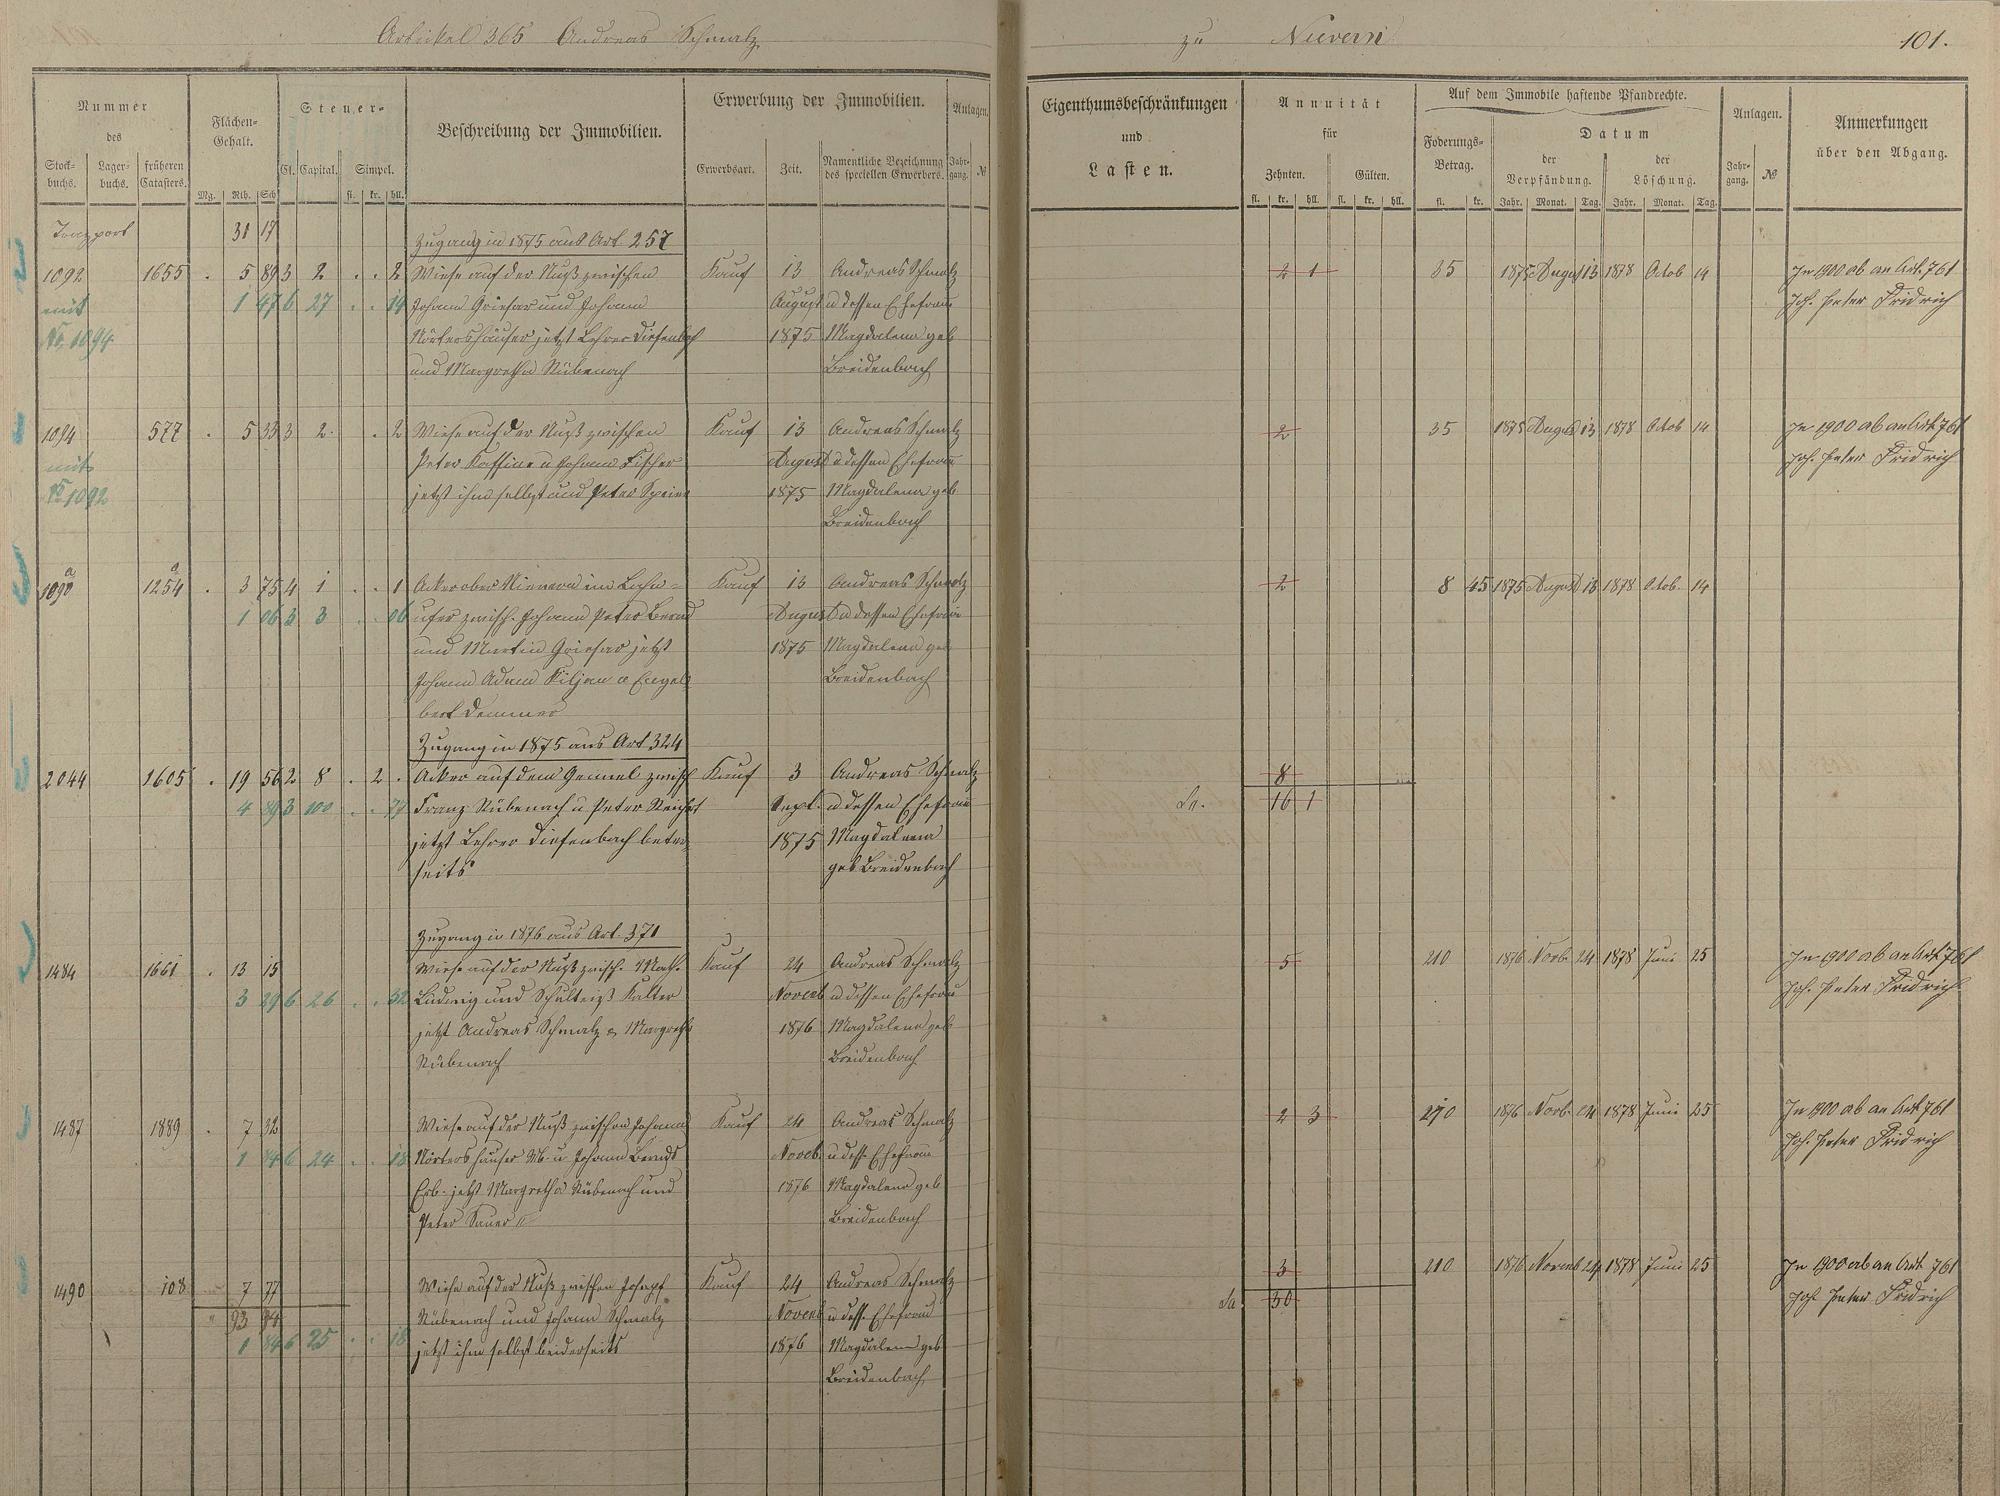 Artickel 365 Andreas Schmalz
zu Nievern
101.
Nummer
des
Stock-
buchs.
Lager-
buchs.
früheren
Catasters.
Flächen-
Gehalt.
Mg. Rth. Sch
Steuer-
Cl. Capital. Simpel.
fl. kr. hll.
Beschreibung der Immobilien.
Erwerbung der Immobilien.
Erwerbsart. Zeit. Namentliche Bezeichnung
des speciellen Erwerbers.
Anlagen.
Jahr-
gang. №
Eigenthumsbeschränkungen
und
Lasten.
Annuität
für
Zehnten. Gülten.
fl. kr. hll. fl. kr. hll.
Auf dem Immobile haftende Pfandrechte.
Foderungs-
Betrag.
fl. kr.
Datum
der
Verpfändung.
der
Löschung.
Jahr. Monat. Tag. Jahr. Monat. Tag.
Anlagen.
Jahr-
gang. №
Anmerkungen
über den Abgang.
Transport 31 17
Zugang in 1875 aus Art. 257
1092 1655 . 5 89 3 2 . . 2 Wiese auf der Nuß zwischen Kauf 13 Andreas Schmalz 2 1 35 1875 August 13 1878 Octob 14 In 1900 ab an Art. 761
mit 1 47 6 27 . . 14 Johann Griesar und Johann August u dessen Ehefrau Joh. Peter Fridrich
No. 1094 Nörtershäuser jetzt Lehrer Diefenbach 1875 Magdalena geb
und Margretha Rübenach Breidenbach
1094 577 . 5 33 3 2 . 2 Wiese auf der Nuß zwischen Kauf 13 Andreas Schmalz 2 35 1875 August 13 1878 Octob 14 In 1900 ab an Art 761
mit Peter Kaffine u Johann Fischer August u dessen Ehefrau Joh. Peter Fridrich
No 1092 jetzt ihm selbst und Peter Speier 1875 Magdalena geb
Breidenbach
1090 a 1254 a . 3 75 4 1 . . 1 Acker ober Nievern im Lahn- Kauf 13 Andreas Schmalz 2 8 45 1875 August 13 1878 Octob. 14
1 06 3 3 . . 06 ufer zwisch. Johann Peter Bernd August u dessen Ehefrau
und Martin Griesar jetzt 1875 Magdalena geb
Johann Adam Kiljan u Engel- Breidenbach
bert Demmer
Zugang in 1875 aus Art 324
2044 1605 . 19 56 2 8 . 2 . Acker auf dem zwisch Kauf 3 Andreas Schmalz 8
4 89 3 100 . . 77 Franz Rübenach u Peter Reichert Sept. u dessen Ehefrau 16 1
jetzt Lehrer Diefenbach beider- 1875 Magdalena
seits geb Breidenbach
Zugang in 1876 aus Art. 371
1484 1661 . 13 15 Wiese auf der Nuß zwisch. Math. Kauf 24 Andreas Schmalz 5 210 1876 Novb. 24 1878 Juni 25 In 1900 ab an Art 761
3 29 6 26 . . 32 Ludwig und Schulteiß Kalter Novemb u dessen Ehefrau Joh. Peter Fridrich
jetzt Andreas Schmalz & Margretha 1876 Magdalena geb
Rübenach Breidenbach
1487 1889 . 7 32 Wiese auf der Nuß zwischen Johann Kauf 24 Andreas Schmalz 2 3 210 1876 Novb. 24 1878 Juni 25 In 1900 ab an Art. 761
1 84 6 24 . . 18 Nörtershäuser Wb. u Johann Bernds Novemb u dess. Ehefrau Joh. Peter Fridrich
Erb. jetzt Margretha Rübenach und 1876 Magdalena geb
Peter Sauer II Breidenbach
1490 108 7 77 Wiese auf der Nuß zwischen Joseph Kauf 24 Andreas Schmalz 3 210 1876 Novemb 24 1878 Juni 25 In 1900 ab an Art 761
93 94 Rübenach und Johann Schmalz Novemb u dess. Ehefrau Sa 30 Joh. Peter Fridrich
1 84 6 25 . . 18 jetzt ihm selbst beiderseits 1876 Magdalena geb
Breidenbach